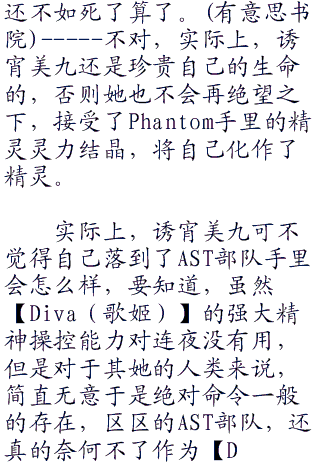 还不如死了算了。(有意思书
院)-----不对，实际上，诱
宵美九还是珍贵自己的生命
的，否则她也不会再绝望之
下，接受了Phantom手里的精
灵灵力结晶，将自己化作了
精灵。
实际上，诱宵美九可不
觉得自己落到了AST部队手里
会怎么样，要知道，虽然
【Diva（歌姬）】的强大精
神操控能力对连夜没有用，
但是对于其她的人类来说，
简直无意于是绝对命令一般
的存在，区区的AST部队，还
真的奈何不了作为【D